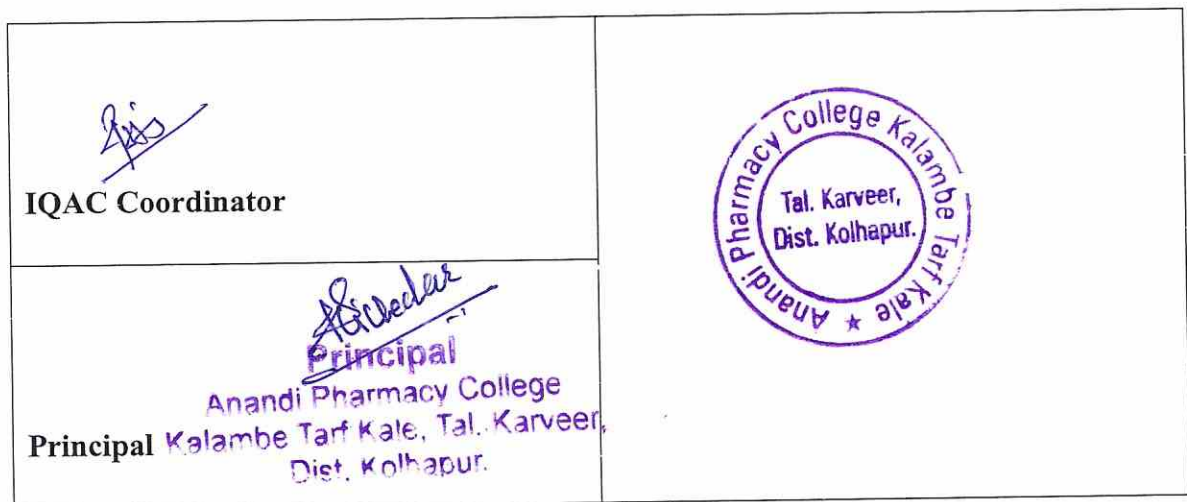 IQAC Coordinator
Principal
Anandi Pharmacy College
Principal Kalambe Tarf Kale, Tal. Karveer,
Dist. Kolhapur.
Anandi Pharmacy College Kalambe Tarf Kale ★
Tal. Karveer,
Dist. Kolhapur.